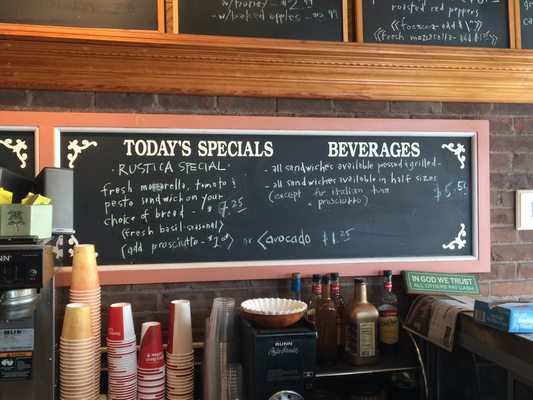 w/honey
w/baked apples .99
roasted red peppers
<<focaccia - add $1>>
<<fresh mozzarella - add $1.25>>
TODAY'S SPECIALS
BEVERAGES
· RUSTICA SPECIAL ·
fresh mozzarello, tomato &
pesto sandwich on your
choice of bread - $7.25
<fresh basil-seasonal>
<add prosciutto - $2.00>
or <avocado $1.25
- all sandwiches available pressed & grilled -
- all sandwiches available in half sizes
(except for italian tuna
& prosciutto)
$5.50
IN GOD WE TRUST
ALL OTHERS PAY CASH
BUNN
BUNN